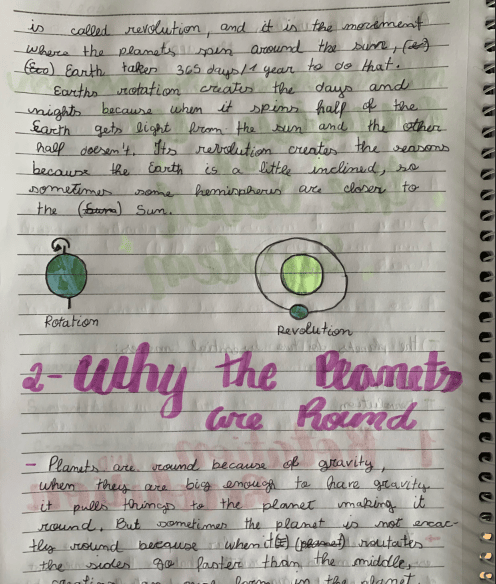 is called revolution, and it is the movement
where the planets spin around the sun,
Earth takes 365 days/1 year to do that.
Earths rotation creates the days and
nights because when it spins half of the
Earth gets light from the sun and the other
half doesen't. Its revolution creates the seasons
because the Earth is a little inclined, so
sometimes some hemispheres are closer to
the (Suna) Sun.
Rotation
Revolution
2- Why the Planets
are Round
- Planets are round because of gravity,
when they are big enough to have gravity
it pulls things to the planet making it
round. But sometimes the planet is not exac-
tly round because when it (planet) routates
the sides go faster than the middle,
the planet